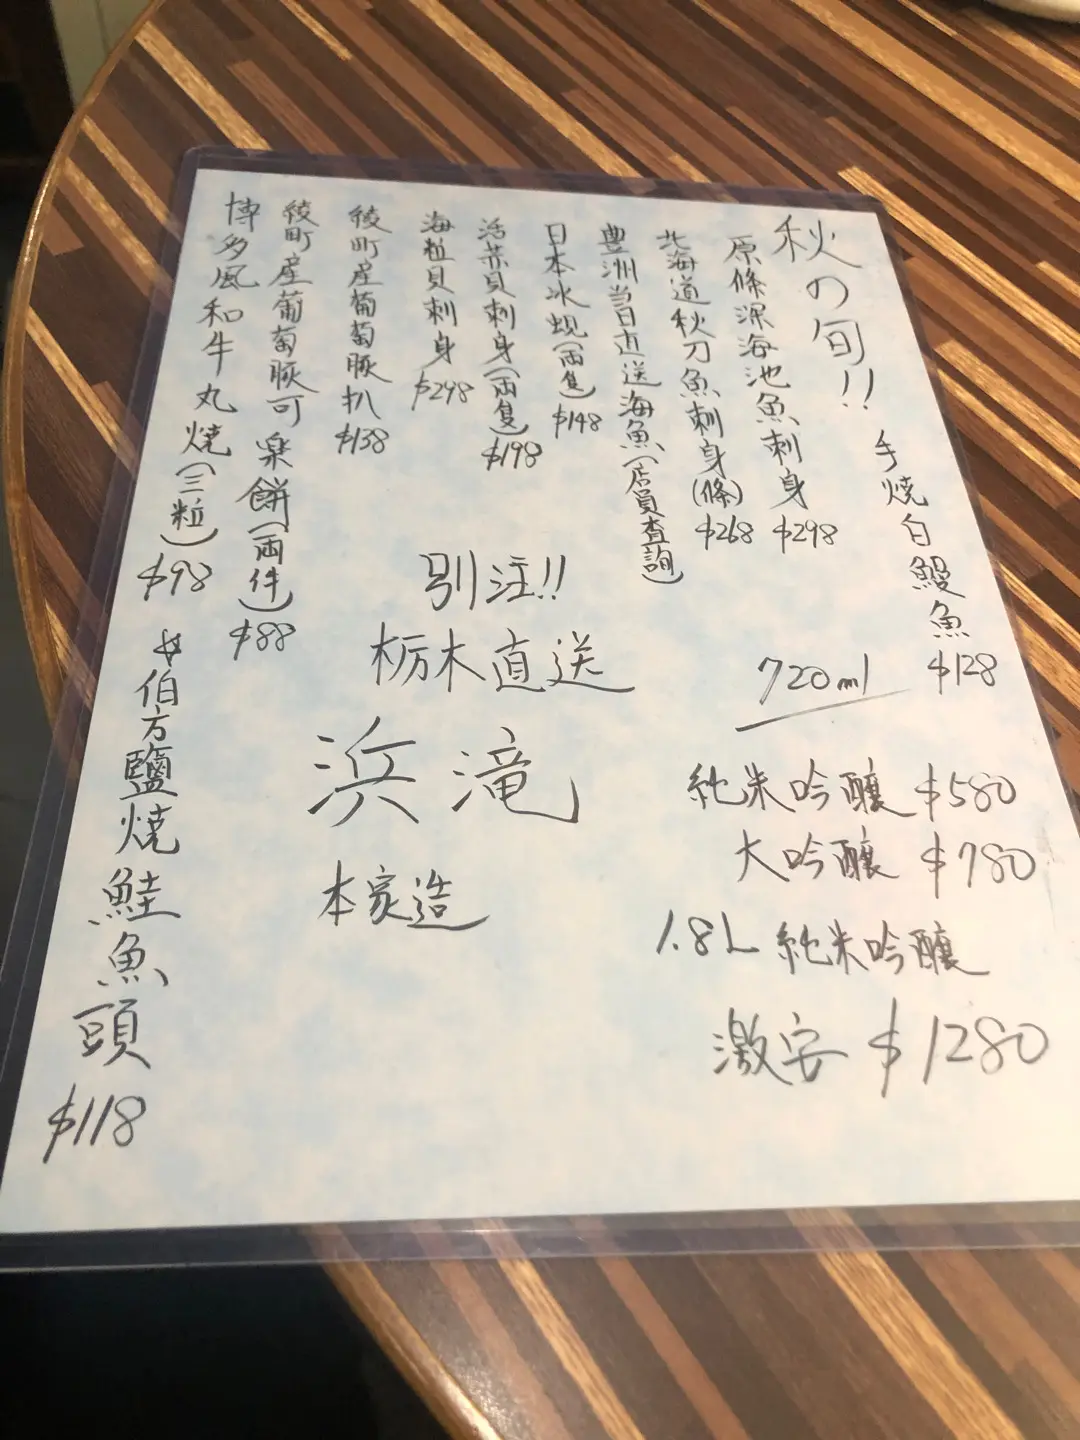 秋の旬!!
手燒白鰻魚 $128
原條深海池魚刺身 $298
北海道秋刀魚刺身(條) $268
豊洲当日直送海魚(店員查詢)
日本冰蜆(兩隻) $148
活螺貝刺身(兩隻) $198
海粒貝刺身 $298
綾町産葡萄豚扒 $138
綾町産葡萄豚可楽餅(兩件) $88
博多風和牛丸燒(三粒) $98
伯方鹽燒鮭魚頭 $118
別注!!
栃木直送
浜滝
本家造
720ml
純米吟釀 $580
大吟釀 $780
1.8L 純米吟釀
激安 $1280